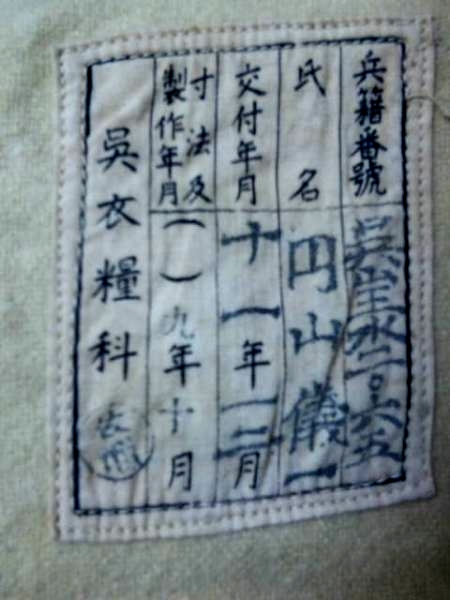 兵籍番號 呉水二〇六五
氏名 円山儀一
交付年月 十一年一二月
寸法及
製作年月 ( )九年十月
呉衣糧科